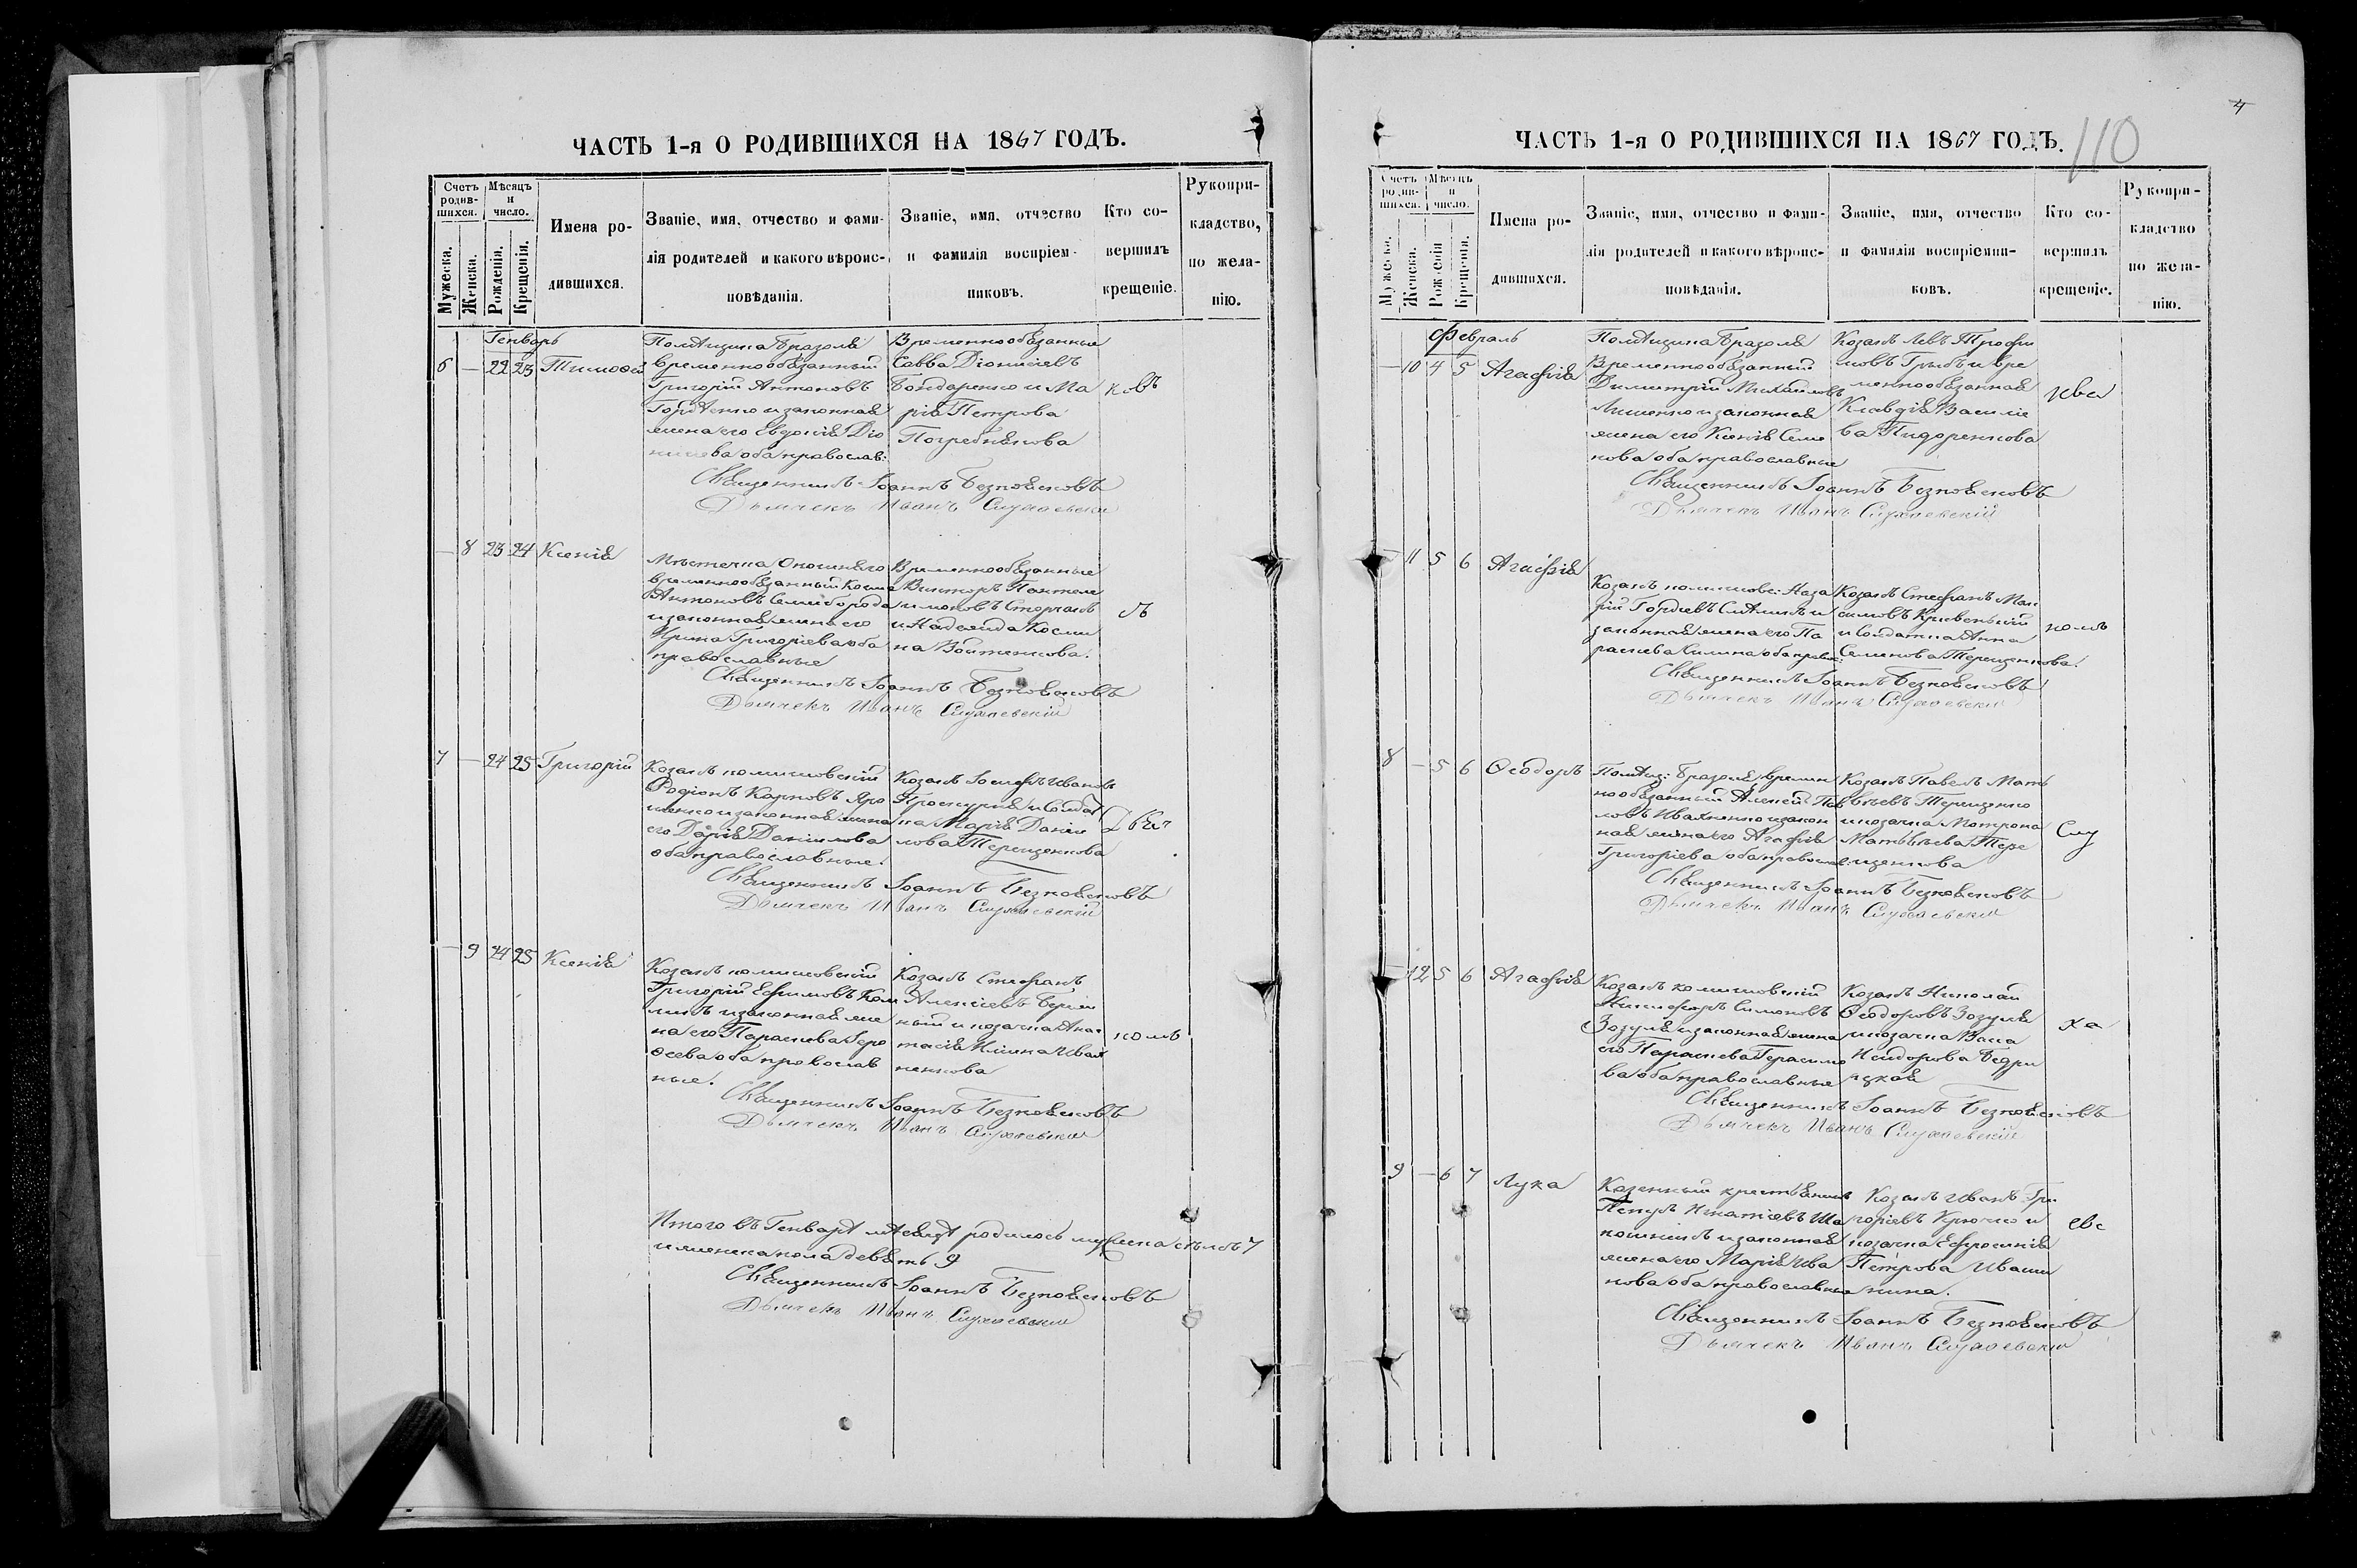 ЧАСТЬ 1-я О РОДИВШИХСЯ НА 1867 ГОДЪ.
Счетъ родившихся.
Мѣсяцъ и число.
Мужеска.
Женска.
Рожденія.
Крещенія.
Имена родившихся.
Званіе, имя, отчество и фами-
лія родителей и какого вѣроис-
повѣданія.
Званіе, имя, отчество
и фамилія воспріем-
никовъ.
Кто со-
вершилъ
крещеніе.
Рукопри-
кладство,
по жела-
нію.
Генварь
6 — 22 23 Тимофей
временнообязанный
Григорій Антоновъ
Гордѣенко и законная
жена его Евдокія Діо
нисіева оба православ:
Временнообязанные
Савва Діонисіевъ
Бондаренко и Ма
рія Петрова
Погребнякова
ковъ
Священникъ Іоаннъ Безпоясковъ
Дьячекъ Иванъ
— 8 23 24 Ксенія
Мѣстечка
временнообязанный Косма
Антоновъ Семиборода
и законная жена его
Ирина Григоріева оба
православные
Временнообязанные
Викторъ Пантеле
имоновъ
и Надежда Косми
на Войтенкова.
ъ
Священникъ Іоаннъ Безпоясковъ
Дьячекъ Иванъ
7 — 24 25 Григорій
Козакъ комишовскій
Родіонъ Карповъ Яро
шенко и законная жена
его Дарія Даніилова
оба православные.
Козакъ Іосифъ Ивановъ
Проскурня и Солдат
ка Марія Даніи
лова Терещенкова
Дьяч
Священникъ Іоаннъ Безпоясковъ
Дьячекъ Иванъ
— 9 24 25 Ксенія
Козакъ комишовскій
Григорій Ефимовъ
и законная же
на его Параскева
оба православ
ные.
Козакъ Стефанъ
Алексіевъ
ный и козачка Анас
тасія Ильина Иваш
ненкова
комъ
Священникъ Іоаннъ Безпоясковъ
Дьячекъ Иванъ
Итого въ Генварѣ мѣсяцѣ родилось мужеска семь 7
и женска пола девять 9
Священникъ Іоаннъ Безпоясковъ
Дьячекъ Иванъ
4
110
ЧАСТЬ 1-я О РОДИВШИХСЯ НА 1867 ГОДЪ.
Счетъ родившихся.
Мѣсяцъ и число.
Мужеска.
Женска.
Рожденія
Крещенія.
Имена ро-
дившихся.
Званіе, имя, отчество и фами-
лія родителей и какого вѣроис-
повѣданія.
Званіе, имя, отчество
и фамилія воспріемни-
ковъ.
Кто со-
вершилъ
крещеніе.
Рукопри-
кладство
по жела-
нію.
Февраль
— 10 4 5 Агафія
Временнообязанный
Димитрій Михайловъ
и законная
жена его Ксенія Симе
нова оба православные
Козакъ Левъ Трофи
мовъ Грыбъ и вре
меннообязанная
Клавдія Василіе
ва Пидоренкова
Ива
Священникъ Іоаннъ Безпоясковъ
Дьячекъ Иванъ
— 11 5 6 Агафія
Козакъ комишов: Наза
рій Гордіевъ и
законная жена его Па
раскева оба правос:
Козакъ Стефанъ Мак
симовъ Кривенькій
и Солдатка Анна
Семенова Терещенкова.
номъ
Священникъ Іоаннъ Безпоясковъ
Дьячекъ Иванъ
8 — 5 6 Ѳеодоръ
времен
нообязанный Алексій Пав
ловъ Ивахненко и закон
ная жена его Агафія
Григоріева оба православ:
Козакъ Павелъ Матѳ
ѣевъ Терещенко
и козачка Мотрона
Матѳѣева Тере
щенкова
Слу
Священникъ Іоаннъ Безпоясковъ
Дьячекъ Иванъ
— 12 5 6 Агафія
Козакъ комишовскій
Никифоръ Симоновъ
Зозуля и законная жена
его Параскева Герасимо
ва оба православные
Козакъ Николай
Ѳеодоровъ Зозуля
и козачка Васса
Исидорова Бедри
цкая
ха
Священникъ Іоаннъ Безпоясковъ
Дьячекъ Иванъ
9 — 6 7 Лука
Казенный крестьянинъ
Игнатіевъ Ша
пошникъ и законная
жена его Марія Ива
нова оба православные
Козакъ Иванъ Гри
горіевъ Крючко и
козачка Ефросинія
Петрова Иваши
нина.
евс
Священникъ Іоаннъ Безпоясковъ
Дьячекъ Иванъ